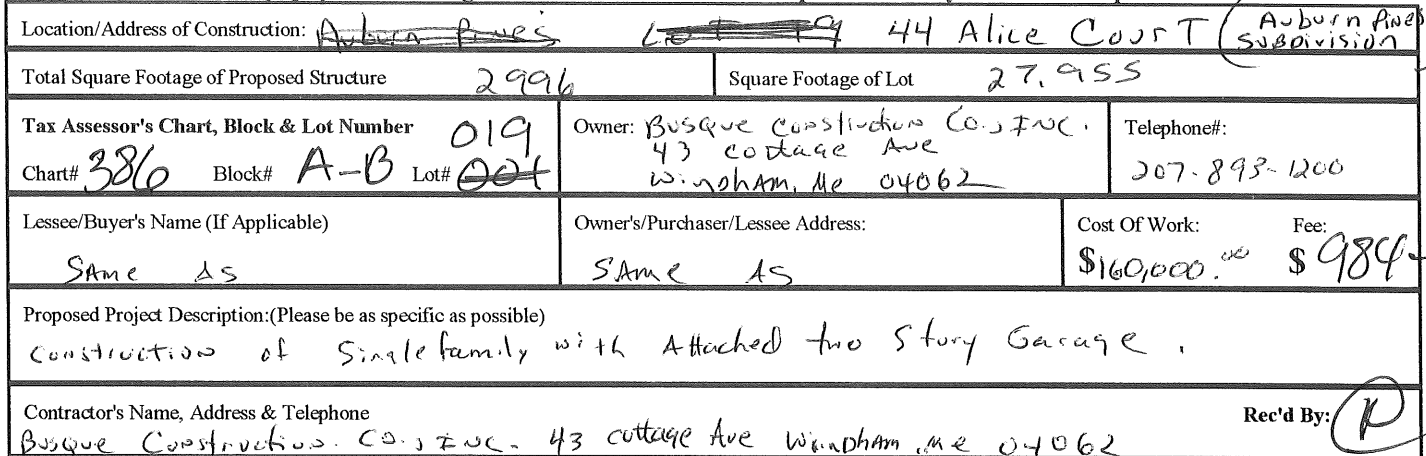 Location/Address of Construction: Auburn Pines Lot 19 44 Alice Court (Auburn Pines
Subdivision
Total Square Footage of Proposed Structure 2996 Square Footage of Lot 27,955
Tax Assessor's Chart, Block & Lot Number 019
Chart# 386 Block# A-B Lot# 001
Owner: Busque Construction Co., Inc.
43 cottage Ave
Windham, Me 04062
Telephone#:
207-893-1200
Lessee/Buyer's Name (If Applicable)
SAme AS
Owner's/Purchaser/Lessee Address:
SAme AS
Cost Of Work:
$160,000.00
Fee:
$ 984-
Proposed Project Description:(Please be as specific as possible)
Construction of Single family with Attached two Story Garage.
Contractor's Name, Address & Telephone Rec'd By:
Busque Construction Co., Inc. 43 cottage Ave Windham, Me 04062